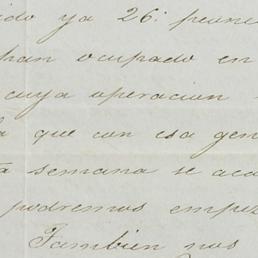 ido ya 26. peones
han ocupado en
cuya operacion
a que con esa gen
ta semana se aca
podremos empez
Tambien nos